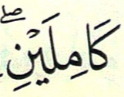 كَامِلَيْنِ ۖ